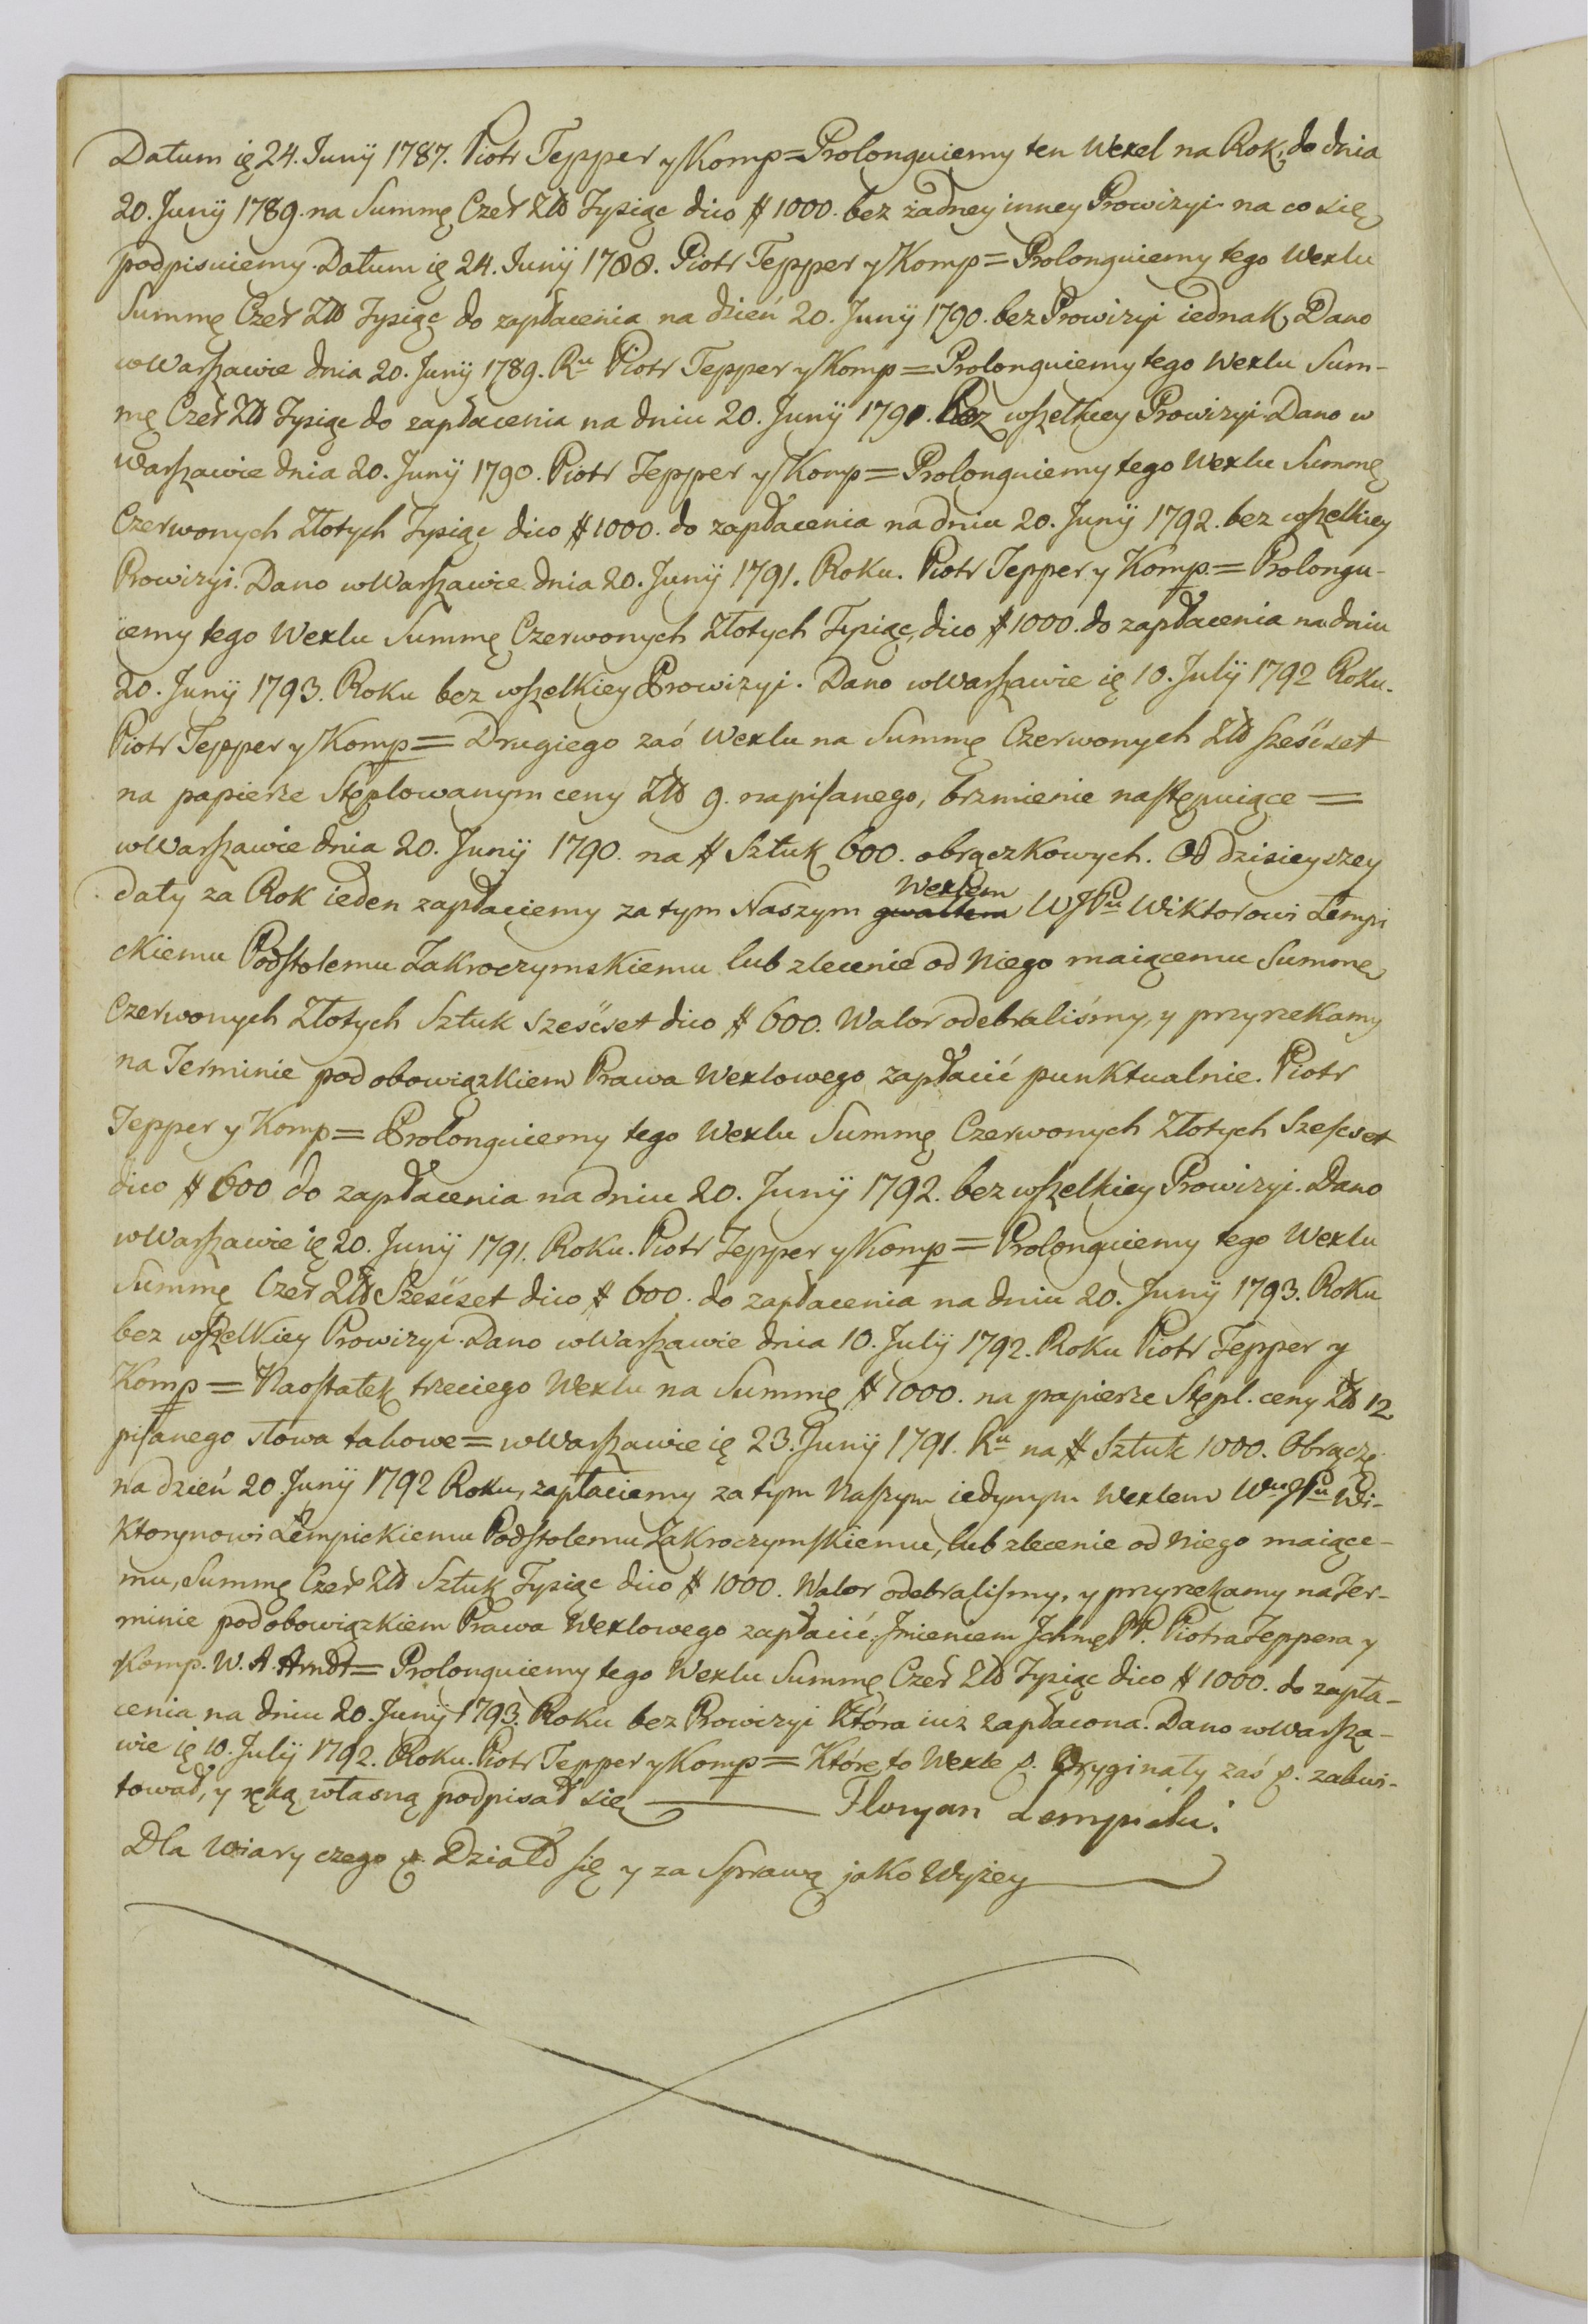 Datum ię 24. Junij 1787. Piotr Tepper y Komp = Prolonguiemy ten Wexel na Rok, do dnia
20. Junij 1789. na Summę Czer Złł Tysiąc dico # 1000. bez żadney inney Prowizyi na co się
podpisuiemy. Datum ię 24. Junij 1788. Piotr Tepper y Komp = Prolonguiemy tego Wexlu
Summę Czer Złł Tysiąc do zapłacenia na dzień 20. Junij 1790. bez Prowizyi iednak, Dano
w Warszawie dnia 20. Junij 1789. Ru Piotr Tepper y Komp = Prolonguiemy tego Wexlu Sum-
mę Czer Złł Tysiąc do zapłacenia na dniu 20. Junij 1791. bez wszelkiey Prowizyi. Dano w
Warszawie dnia 20. Junij 1790. Piotr Tepper y Komp = Prolonguiemy tego Wexlu Summę
Czerwonych Złotych Tysiąc dico # 1000. do zapłacenia na dniu 20. Junij 1792. bez wszelkiey
Prowizyi. Dano w Warszawie dnia 20. Junij 1791. Roku. Piotr Tepper y Komp = Prolongu-
iemy tego Wexlu Summę Czerwonych Złotych Tysiąc, dico # 1000. do zapłacenia na dniu
20. Junij 1793. Roku bez wszelkiey Prowizyi. Dano w Warszawie ię 10. Julij 1792 Roku.
Piotr Tepper y Komp = Drugiego zaś Wexlu na Summę Czerwonych Złł sześćset
na papierze Stęplowanym ceny Złł 9. napisanego, brzmienie następuiące =
w Warszawie dnia 20. Junij 1790. na # Sztuk 600. obrączkowych. Od dzisieyszey
daty za Rok ieden zapłaciemy za tym Naszym gwałtem Wexlem WJPu Wiktorowi Łempi
ckiemu Podstolemu Zakroczymskiemu lub zlecenie od Niego maiącemu Summę
Czerwonych Złotych Sztuk sześćset dico # 600. Walor odebraliśmy, y przyrzekamy
na Terminie pod obowiązkiem Prawa Wexlowego zapłacić punktualnie. Piotr
Tepper y Komp = Prolonguiemy tego Wexlu Summę Czerwonych Złotych Szescset
dico # 600 do zapłacenia na dniu 20. Junij 1792. bez wszelkiey Prowizyi. Dano
w Warszawie ię 20. Junij 1791. Roku. Piotr Tepper y Komp = Prolonguiemy tego Wexlu
Summę Czer Złł Sześćset dico # 600. do zapłacenia na dniu 20. Junij 1793. Roku
bez wszelkiey Prowizyi. Dano w Warszawie dnia 10. Julij 1792. Roku Piotr Tepper y
Komp = Naostatek trzeciego Wexlu na Summę # 1000. na papierze Stępl. ceny Złł 12
pisanego słowa takowe = w Warszawie ię 23. Junij 1791. Ru na # Sztuk 1000. Obrączk
na dzień 20 Junij 1792 Roku, zapłaciemy za tym Naszym iedynym Wexlem WuJPu Wi-
ktorynowi Łempickiemu Podstolemu Zakroczymskiemu, lub zlecenie od Niego maiące-
mu, Summę Czer Złł Sztuk Tysiąc dico # 1000. Walor odebralismy, y przyrzekamy na Ter-
minie pod obowiązkiem Prawa Wexlowego zapłacić. Imieniem Ichmę PP. Piotra Teppera y
Komp. W. A. Arndt = Prolonguiemy tego Wexlu Summę Czer Złł Tysiąc dico # 1000. do zapła-
cenia na dniu 20. Junij 1793. Roku bez Prowizyi która iuż zapłacona. Dano w Warsza-
wie ię 10. Julij 1792. Roku. Piotr Tepper y Komp = Które to Wexle p. Oryginały zaś p. zakwi-
tował, y ręką własną podpisał się Floryan Łempicki.
Dla Wiary czego p. Działo się y za Sprawą jako Wyżey